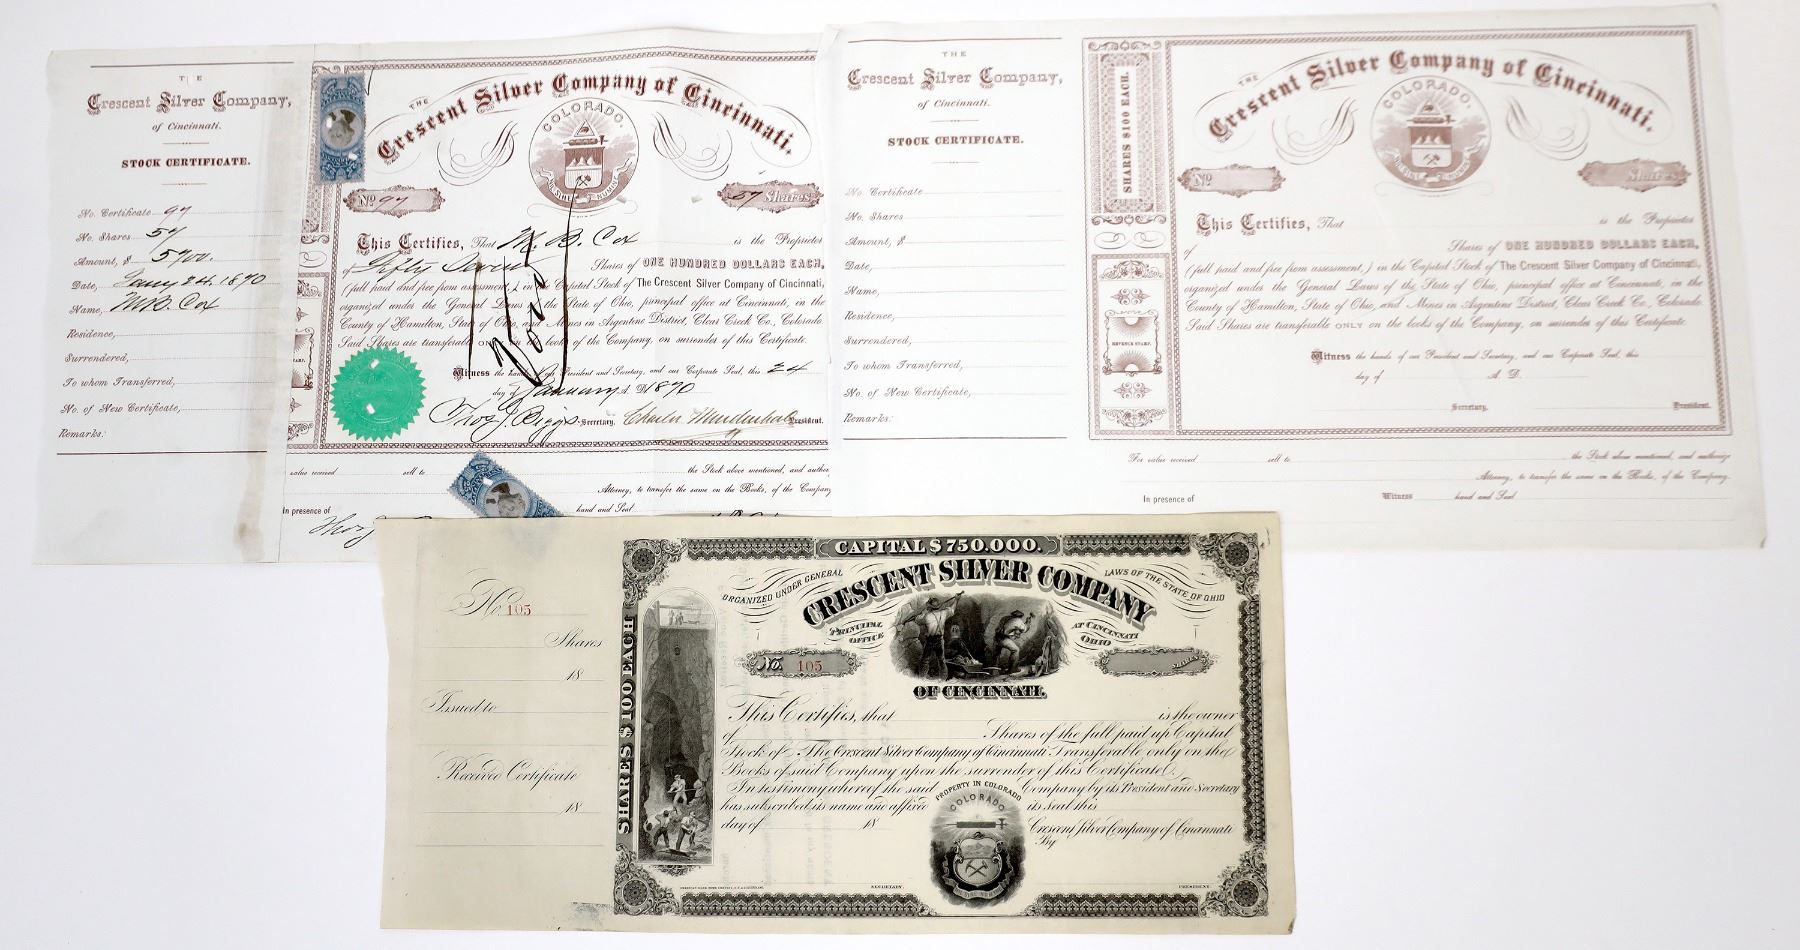 THE
Crescent Silver Company,
of Cincinnati.
STOCK CERTIFICATE.
No. Certificate 97
No. Shares 57
Amount, $ 5700.
Date, Jany 24. 1870
Name, M.B. Cox
Residence,
Surrendered,
To whom Transferred,
No. of New Certificate,
Remarks:
THE
Crescent Silver Company of Cincinnati.
COLORADO.
NIL SINE NUMINE
No 97
57 Shares
This Certifies, That M. B. Cox is the Proprietor
of Fifty Seven Shares of ONE HUNDRED DOLLARS EACH,
(full paid and free from assessment,) in the Capital Stock of The Crescent Silver Company of Cincinnati,
organized under the General Laws of the State of Ohio, principal office at Cincinnati, in the
County of Hamilton, State of Ohio, and Mines in Argentine District, Clear Creek Co., Colorado.
Said Shares are transferable ONLY on the books of the Company, on surrender of this Certificate.
Witness the hands of our President and Secretary, and our Corporate Seal, this 24
day of January A. D. 1870
Thos J. Biggs Secretary. Charles Mendenhall President.
value received sell to the Stock above mentioned, and autho
Attorney, to transfer the same on the Books, of the Company
In presence of hand and Seal
Thos J
THE
Crescent Silver Company,
of Cincinnati.
STOCK CERTIFICATE.
No. Certificate
No. Shares
Amount, $
Date,
Name,
Residence,
Surrendered,
To whom Transferred,
No. of New Certificate,
Remarks:
SHARES $100 EACH.
REVENUE STAMP.
THE
Crescent Silver Company of Cincinnati.
COLORADO.
NIL SINE NUMINE
No
Shares
This Certifies, That is the Proprietor
of Shares of ONE HUNDRED DOLLARS EACH,
(full paid and free from assessment,) in the Capital Stock of The Crescent Silver Company of Cincinnati,
organized under the General Laws of the State of Ohio, principal office at Cincinnati, in the
County of Hamilton, State of Ohio, and Mines in Argentine District, Clear Creek Co., Colorado.
Said Shares are transferable ONLY on the books of the Company, on surrender of this Certificate.
Witness the hands of our President and Secretary, and our Corporate Seal, this
day of A. D.
Secretary. President.
For value received sell to the Stock above mentioned, and authorize
Attorney, to transfer the same on the Books, of the Company.
In presence of Witness hand and Seal
No. 105
Shares
18
Issued to
Received Certificate
18
SHARES $100 EACH
CAPITAL $750.000.
ORGANIZED UNDER GENERAL LAWS OF THE STATE OF OHIO
CRESCENT SILVER COMPANY
PRINCIPAL OFFICE AT CINCINNATI OHIO
No. 105
SHARES
OF CINCINNATI.
This Certifies, that is the owner
of Shares of the full paid up Capital
Stock of The Crescent Silver Company of Cincinnati Transferable only on the
Books of said Company upon the surrender of this Certificate.
In testimony whereof the said Company by its President and Secretary
has subscribed its name and affixed its Seal this
day of 18 Crescent Silver Company of Cincinnati
By
PROPERTY IN COLORADO
COLORADO
SECRETARY. PRESIDENT.